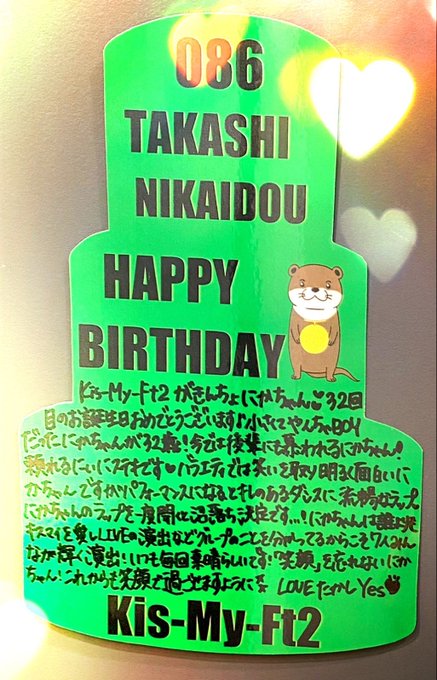 086
TAKASHI
NIKAIDOU
HAPPY
BIRTHDAY
Kis-My-Ft2 がきんちょにかちゃん♥32回
目のお誕生日おめでとうございます♪小さくてやんちゃBOY
だったにかちゃんが32歳!今では後輩にも慕われるにかちゃん!
頼れるにーにステキです♥バラエティでは笑いを取り明るく面白いに
かちゃんですがパフォーマンスになるとキレのあるダンスに流暢なラップ
にかちゃんのラップを一度聞けば沼落ち決定です…!にかちゃんは誰より
キスマイを愛しLIVEの演出などグループのことを分かってるからこそ7人みん
なが輝く演出!いつも毎回素晴らしいです!"笑顔"を忘れないにか
ちゃん!これからも笑顔で過ごせますように LOVEたかし Yes
Kis-My-Ft2